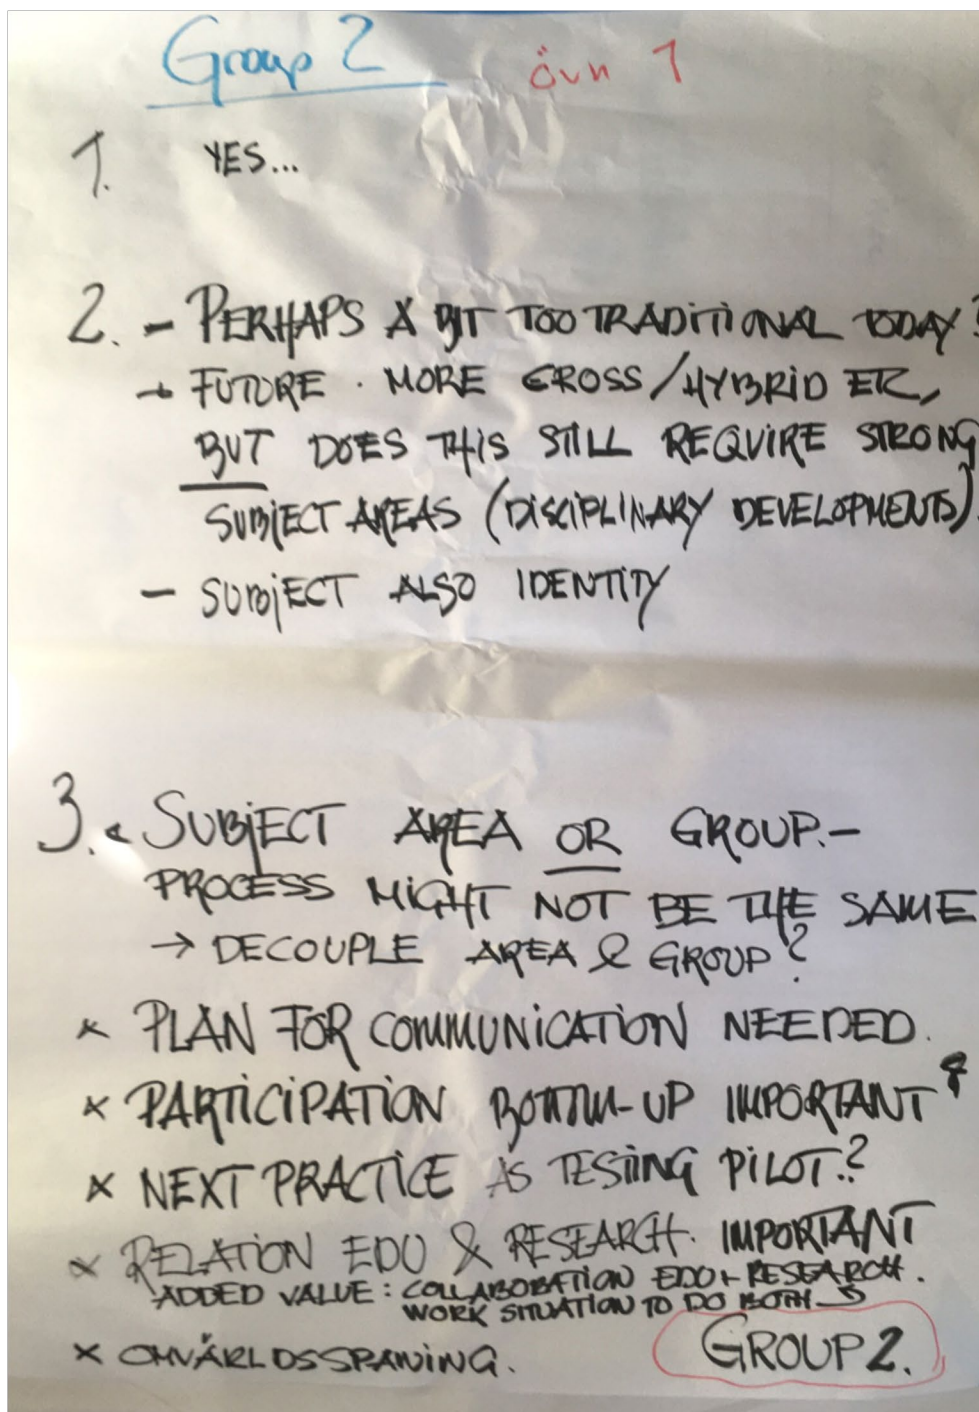 Group 2 övn 1
1. YES...
2. - PERHAPS A BIT TOO TRADITIONAL TODAY?
- FUTURE . MORE CROSS/HYBRID ETC,
BUT DOES THIS STILL REQUIRE STRONG
SUBJECT AREAS (DISCIPLINARY DEVELOPMENTS)
- SUBJECT ALSO IDENTITY
3. SUBJECT AREA OR GROUP.-
PROCESS MIGHT NOT BE THE SAME
→ DECOUPLE AREA & GROUP?
x PLAN FOR COMMUNICATION NEEDED.
x PARTICIPATION BOTTOM-UP IMPORTANT
x NEXT PRACTICE AS TESTING PILOT.?
x RELATION EDU & RESEARCH. IMPORTANT
ADDED VALUE: COLLABORATION EDU + RESEARCH.
WORK SITUATION TO DO BOTH
x OMVÄRLDSSPANING.
GROUP 2.